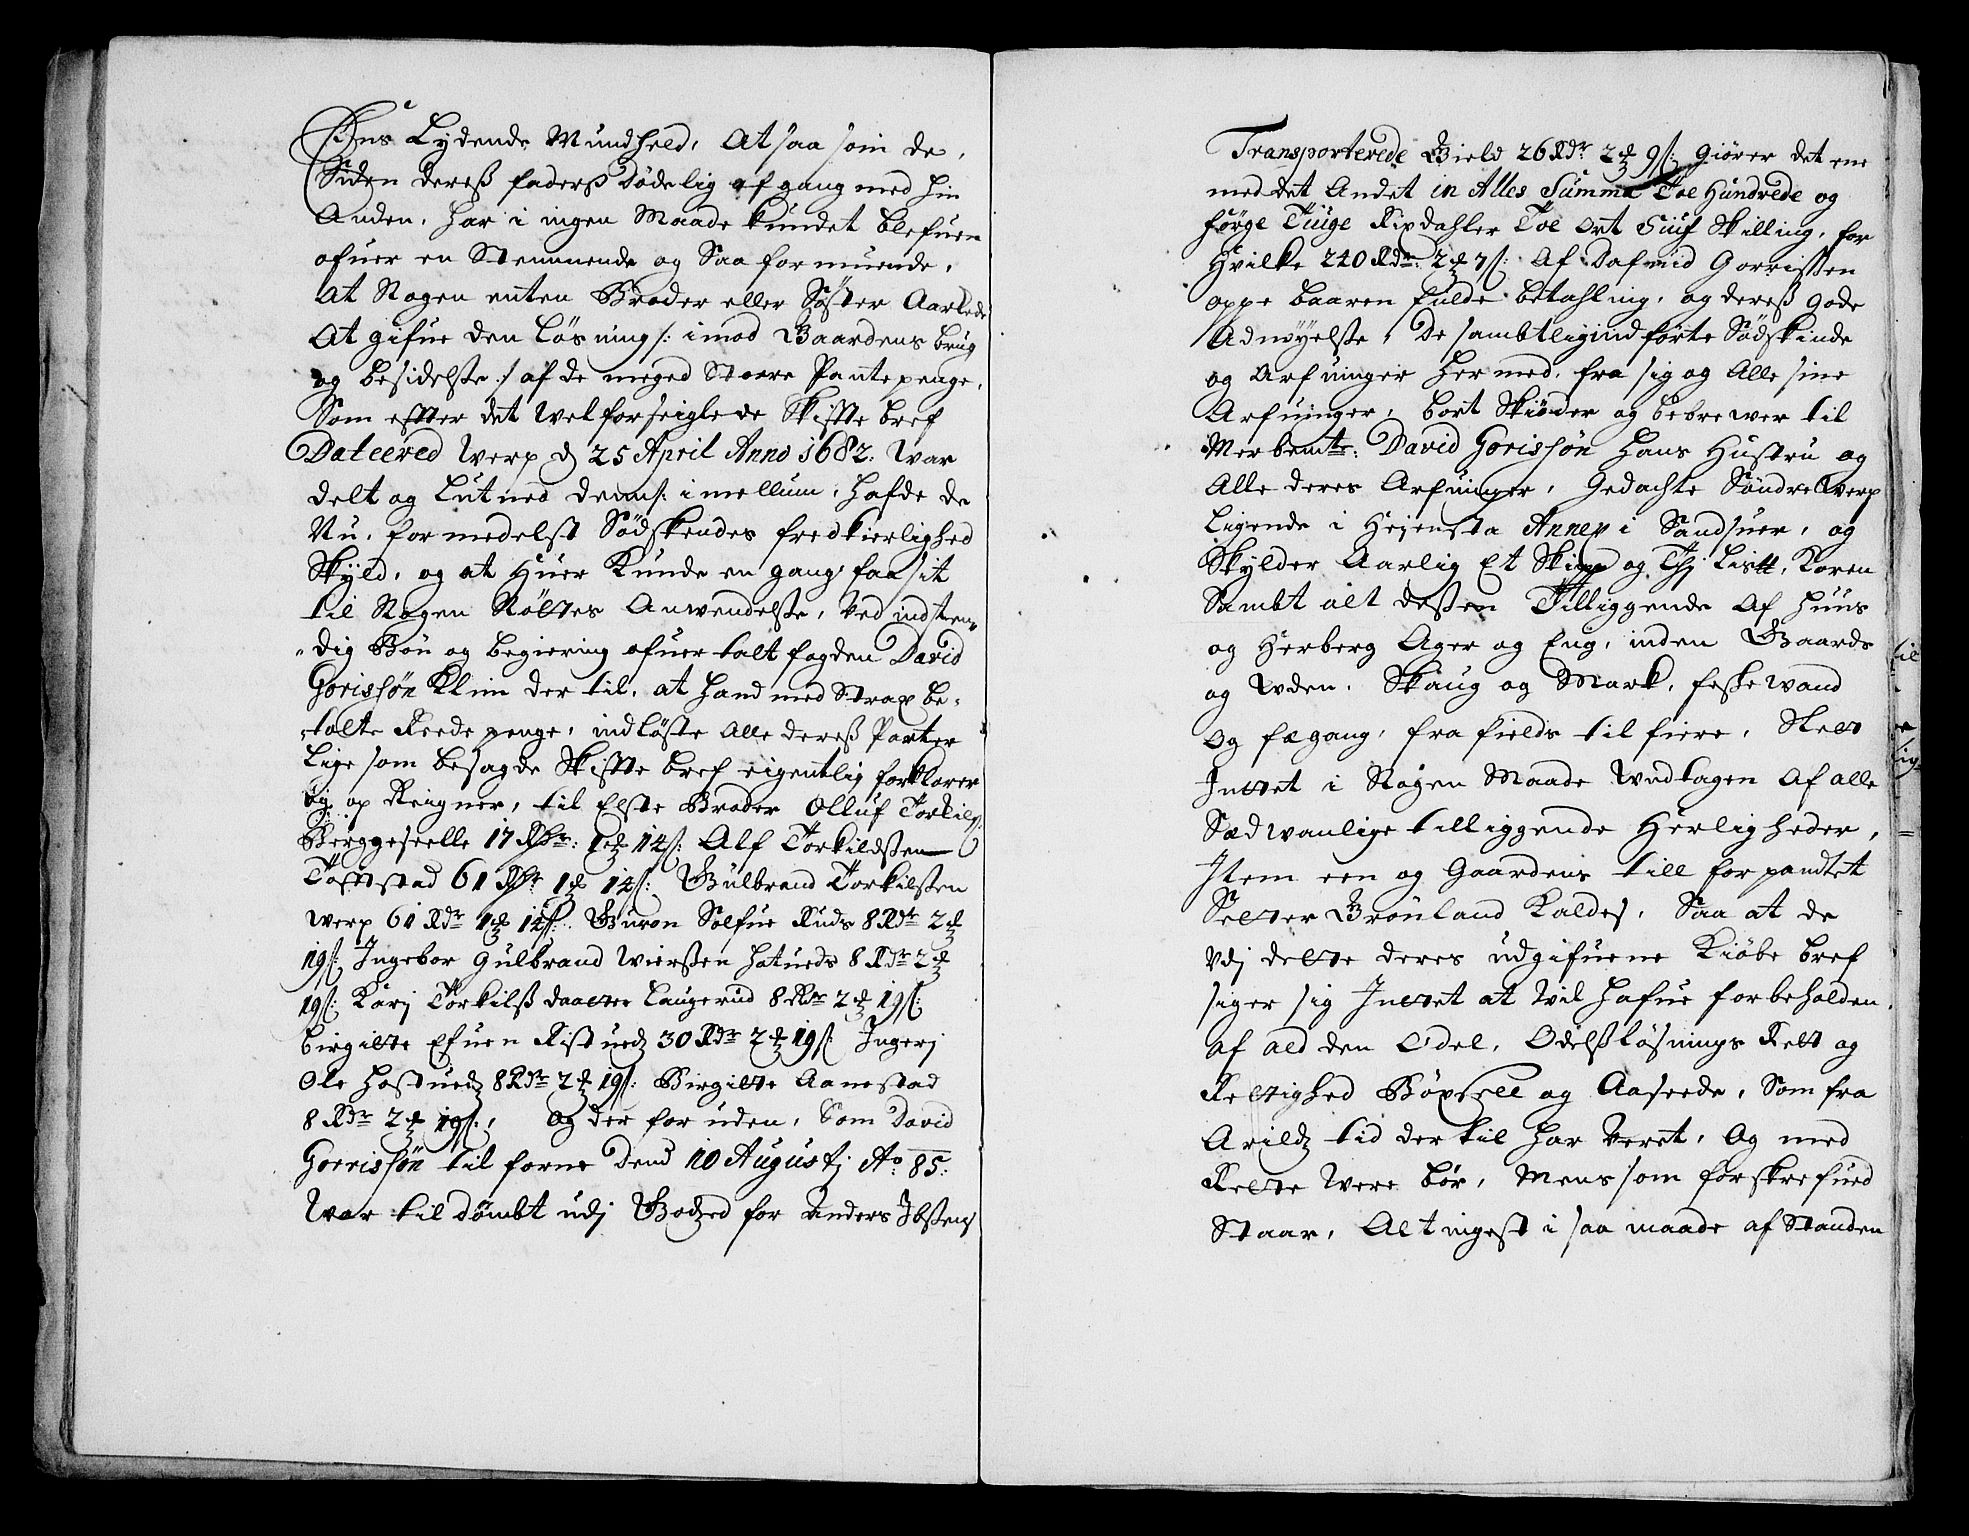 Ens Lydende Mundheld, At saa som de,
Siden dereß faderß Dödelig afgang med hin
Anden, har i ingen Maade kundet blefuen
ofuer en Stemmende og Saa formuende,
At Nogen enten Broder eller Söster Aarlede
At gifue den Lösning /: imod Gaardens brug
og besidelse :/ af de meged Stoere Pantepenge,
Som effter det welforseiglede Skiffte bref
Dateered Werp d 25 April Anno 1682. War
delt og Lutned denn/: imellum, hafde de
Nu, formedelst Södskendes fredkierlighed
Skyld, og at Huer kunde en gang faa sit
til Nogen Nöttes Anwendelse, ved indsten-
dig Bön og begiering ofuertalt fogden David
Gorissön Klim der til, at hand med Strax be-
talte Reede penge, indlöste Alle dereß Parter
Lige som besagde Skiffte bref eigentlig forklarer
og op Reigner, til Elste Broder Olluf Torkils:
Berggeselle 17 Rdr: 1 14 ß: Alf Torkildßen
Tofftstad 61 Rdr 1 14 ß: Gulbrand Torkilßen
Werp 61 Rdr 1 14 ß: Guron Solfue Ruds 8 Rdr 2
19 ß: Ingebor Gulbrand Wierßen hatueds 8 Rdr 2
19 ß: Kari Torkilß daatter Laugerud 8 Rdr 2 19 ß:
birgitte Efuen Ristuedz 30 Rdr 2 19 ß: Ingerj
Ole Hostuedz 8 Rdr 2 19 ß: Birgitte Aanestad
8 Rdr 2 19 ß:, Og der foruden, Som David
Gorrissön til forne Dend 10 Augustj Ao 85:
War tildömbt udj Godzed for Anders Ibßens
Transporterede Gield 26 Rdr 2 9 ß: giörer det ene
med det Andet in Alles Summa Toe Hundrede og
förge Tiuge Rixdahler Toe ort Siuf Skilling, for
Hvilke 240 Rdr: 2 7 ß: Af Dafuid Gorrißen
oppebaaren fulde betahling, og dereß gode
Adnöyelse, De sambtlig indförte Södskinde
og Arfuinger hermed, fra sig og Alle sine
Arfuinger, bort Skiöder og bebrewer til
Merbemte: David Gorissön Hans Hustru og
Alle deres Arfuinger, Gedachte Söndre Werp
Ligende i Hejensta Annex i Sandsuer, og
Skylder Aarlig Et Skipp og Thj List, Koren
Sambt alt deßen Tilliggende Af Huus
og Herberg Ager og Eng, inden Gaards
og Uden, Skaug og Mark, feskewand
og fægang, fra fields til fiere, Slet
Intet i Nogen Maade Undtagen Af alle
Sædwanlige tilliggende Herligheder,
Item een og Gaardens till forpandtet
Setter Brönland Kaldes, Saa at de
Udj dette deres udgifuene Kiöbe bref
siger sig Intet at wil hafue forbeholden,
af ald den Odel, Odelßlösnings Rett og
Rettighed Böxsell og Aasæde, Som fra
Arildz tid der til har veret, Og med
Rette Were bör, Mens som forskrefued
Staar, Altingest i saa maade af Standen